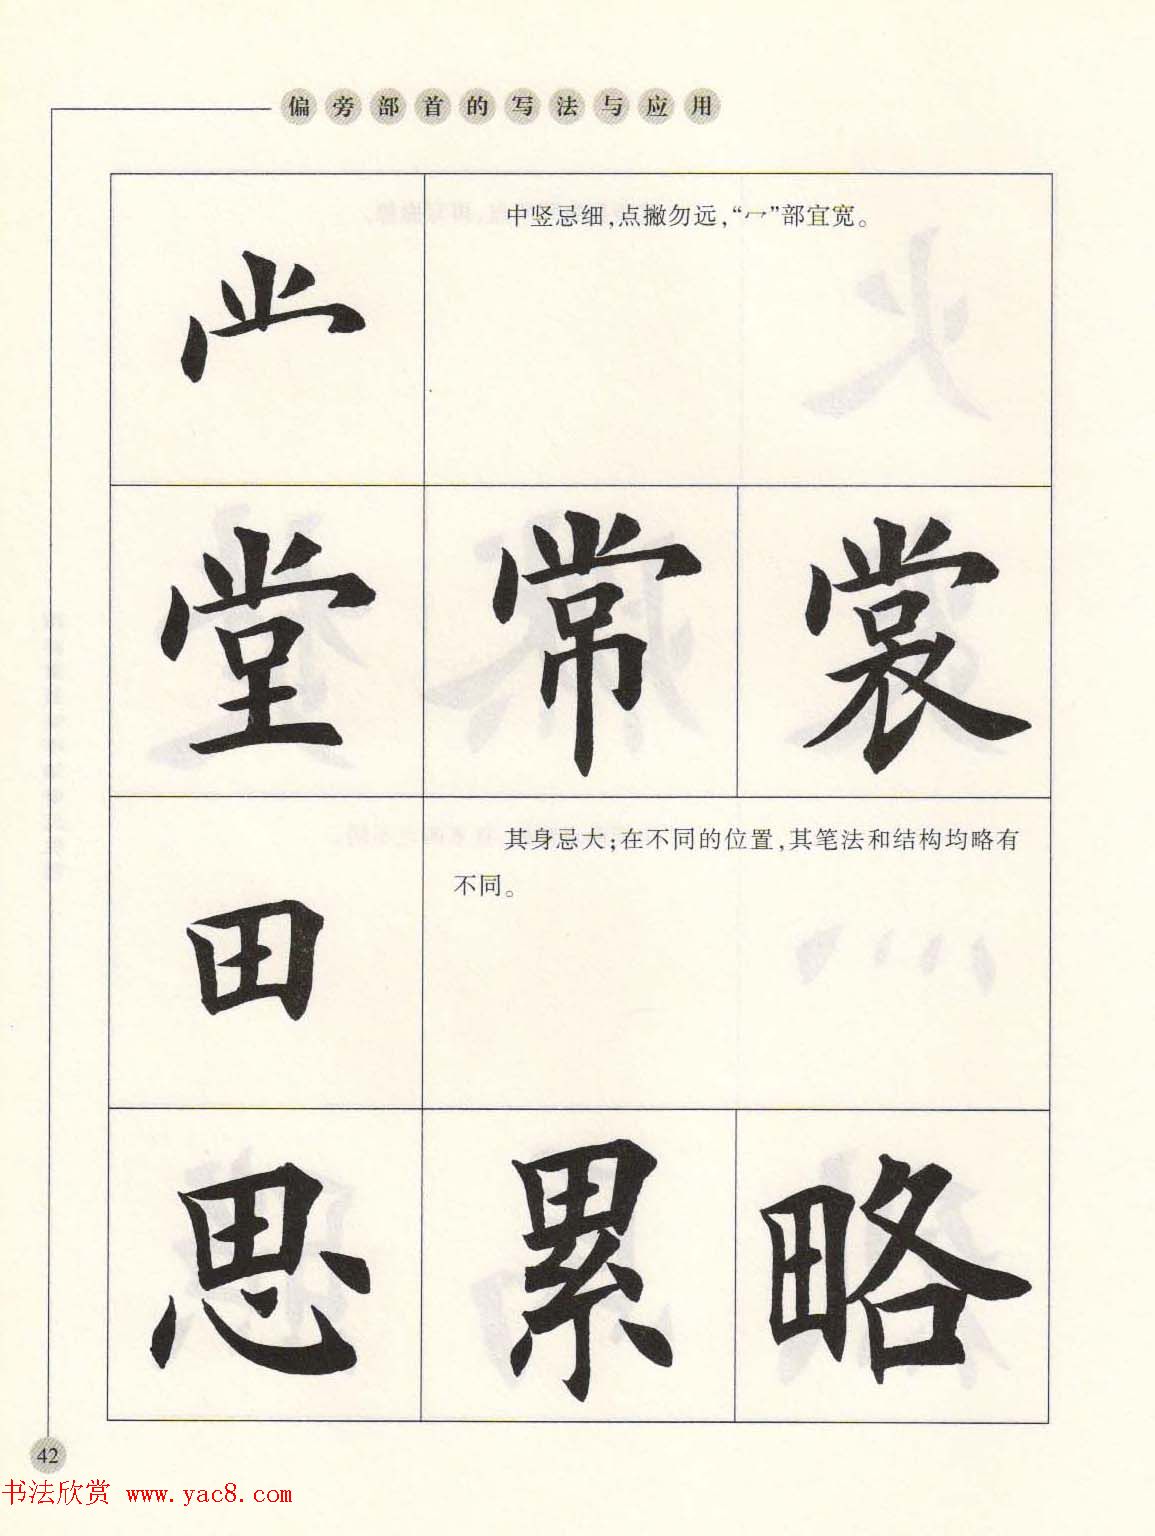 偏旁部首的写法与应用
⺌冖
中竖忌细，点撇勿远，“冖”部宜宽。
堂 常 裳
田
其身忌大；在不同的位置，其笔法和结构均略有
不同。
思 累 略
42
书法欣赏 www.yac8.com